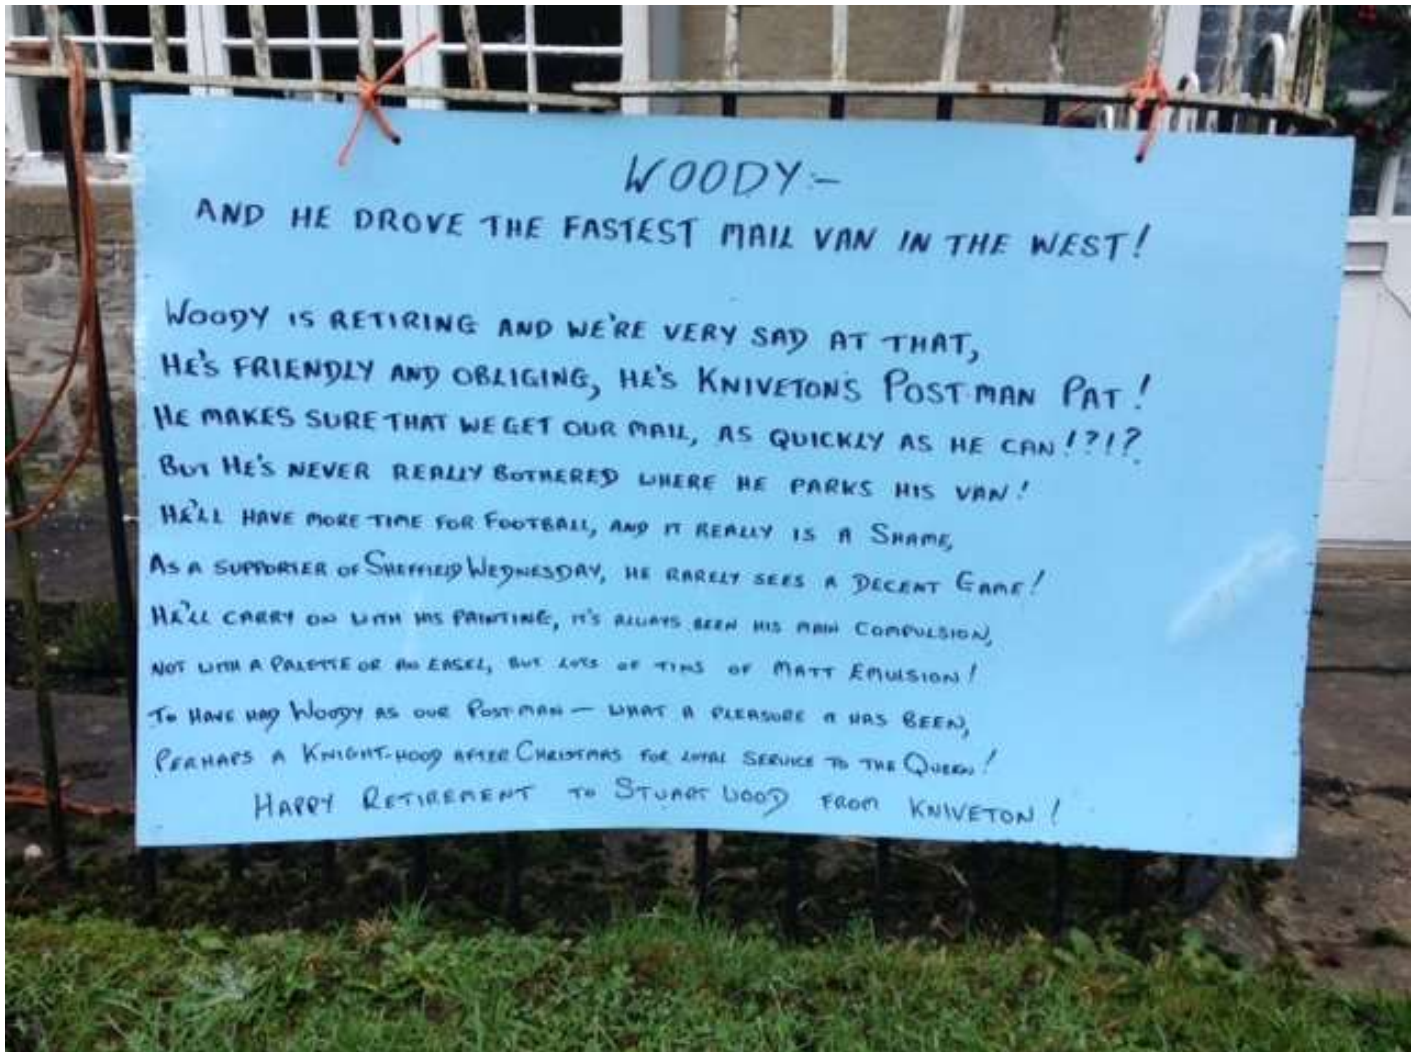 WOODY:-
AND HE DROVE THE FASTEST MAIL VAN IN THE WEST!
WOODY IS RETIRING AND WE'RE VERY SAD AT THAT,
HE'S FRIENDLY AND OBLIGING, HE'S KNIVETON'S POST-MAN PAT!
HE MAKES SURE THAT WE GET OUR MAIL, AS QUICKLY AS HE CAN!?!?
BUT HE'S NEVER REALLY BOTHERED WHERE HE PARKS HIS VAN!
HE'LL HAVE MORE TIME FOR FOOTBALL, AND IT REALLY IS A SHAME,
AS A SUPPORTER OF SHEFFIELD WEDNESDAY, HE RARELY SEES A DECENT GAME!
HE'LL CARRY ON WITH HIS PAINTING, IT'S ALWAYS BEEN HIS MAIN COMPULSION,
NOT WITH A PALETTE OR AN EASEL, BUT LOTS OF TINS OF MATT EMULSION!
TO HAVE HAD WOODY AS OUR POST-MAN — WHAT A PLEASURE IT HAS BEEN,
PERHAPS A KNIGHT-HOOD AFTER CHRISTMAS FOR LOYAL SERVICE TO THE QUEEN!
HAPPY RETIREMENT TO STUART WOOD FROM KNIVETON!